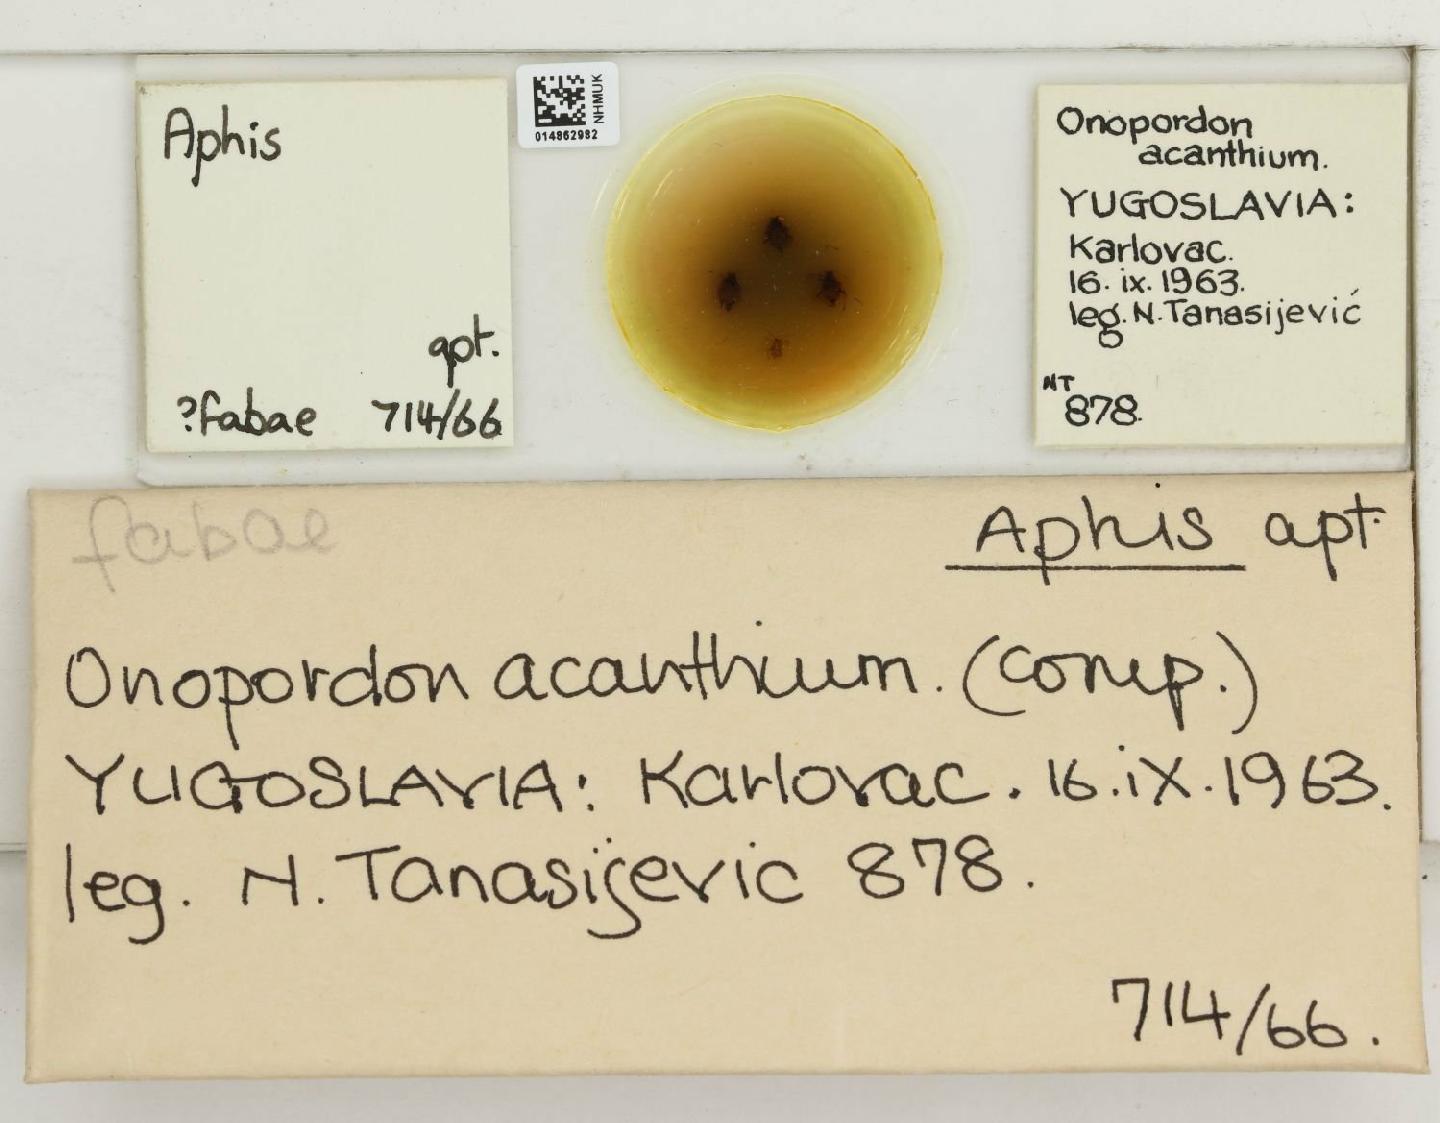 Aphis
apt.
?fabae 714/66
NHMUK
014862982
Onopordon
acanthium.
YUGOSLAVIA:
Karlovac.
16.ix.1963.
leg. N. Tanasijević
NT
878.
fabae
Aphis apt.
Onopordon acanthium. (comp.)
YUGOSLAVIA: Karlovac. 16.iX.1963.
leg. N. Tanasijevic 878.
714/66.